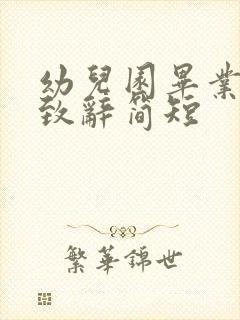 幼兒園畢業
致辭简短
繁華錦世